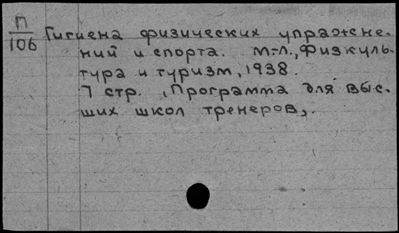 П
106
Гигиена физических упражне-
ний и спорта. М-Л., Физкуль-
тура и туризм, 1938.
7 стр. „Программа для выс-
ших школ тренеров„.